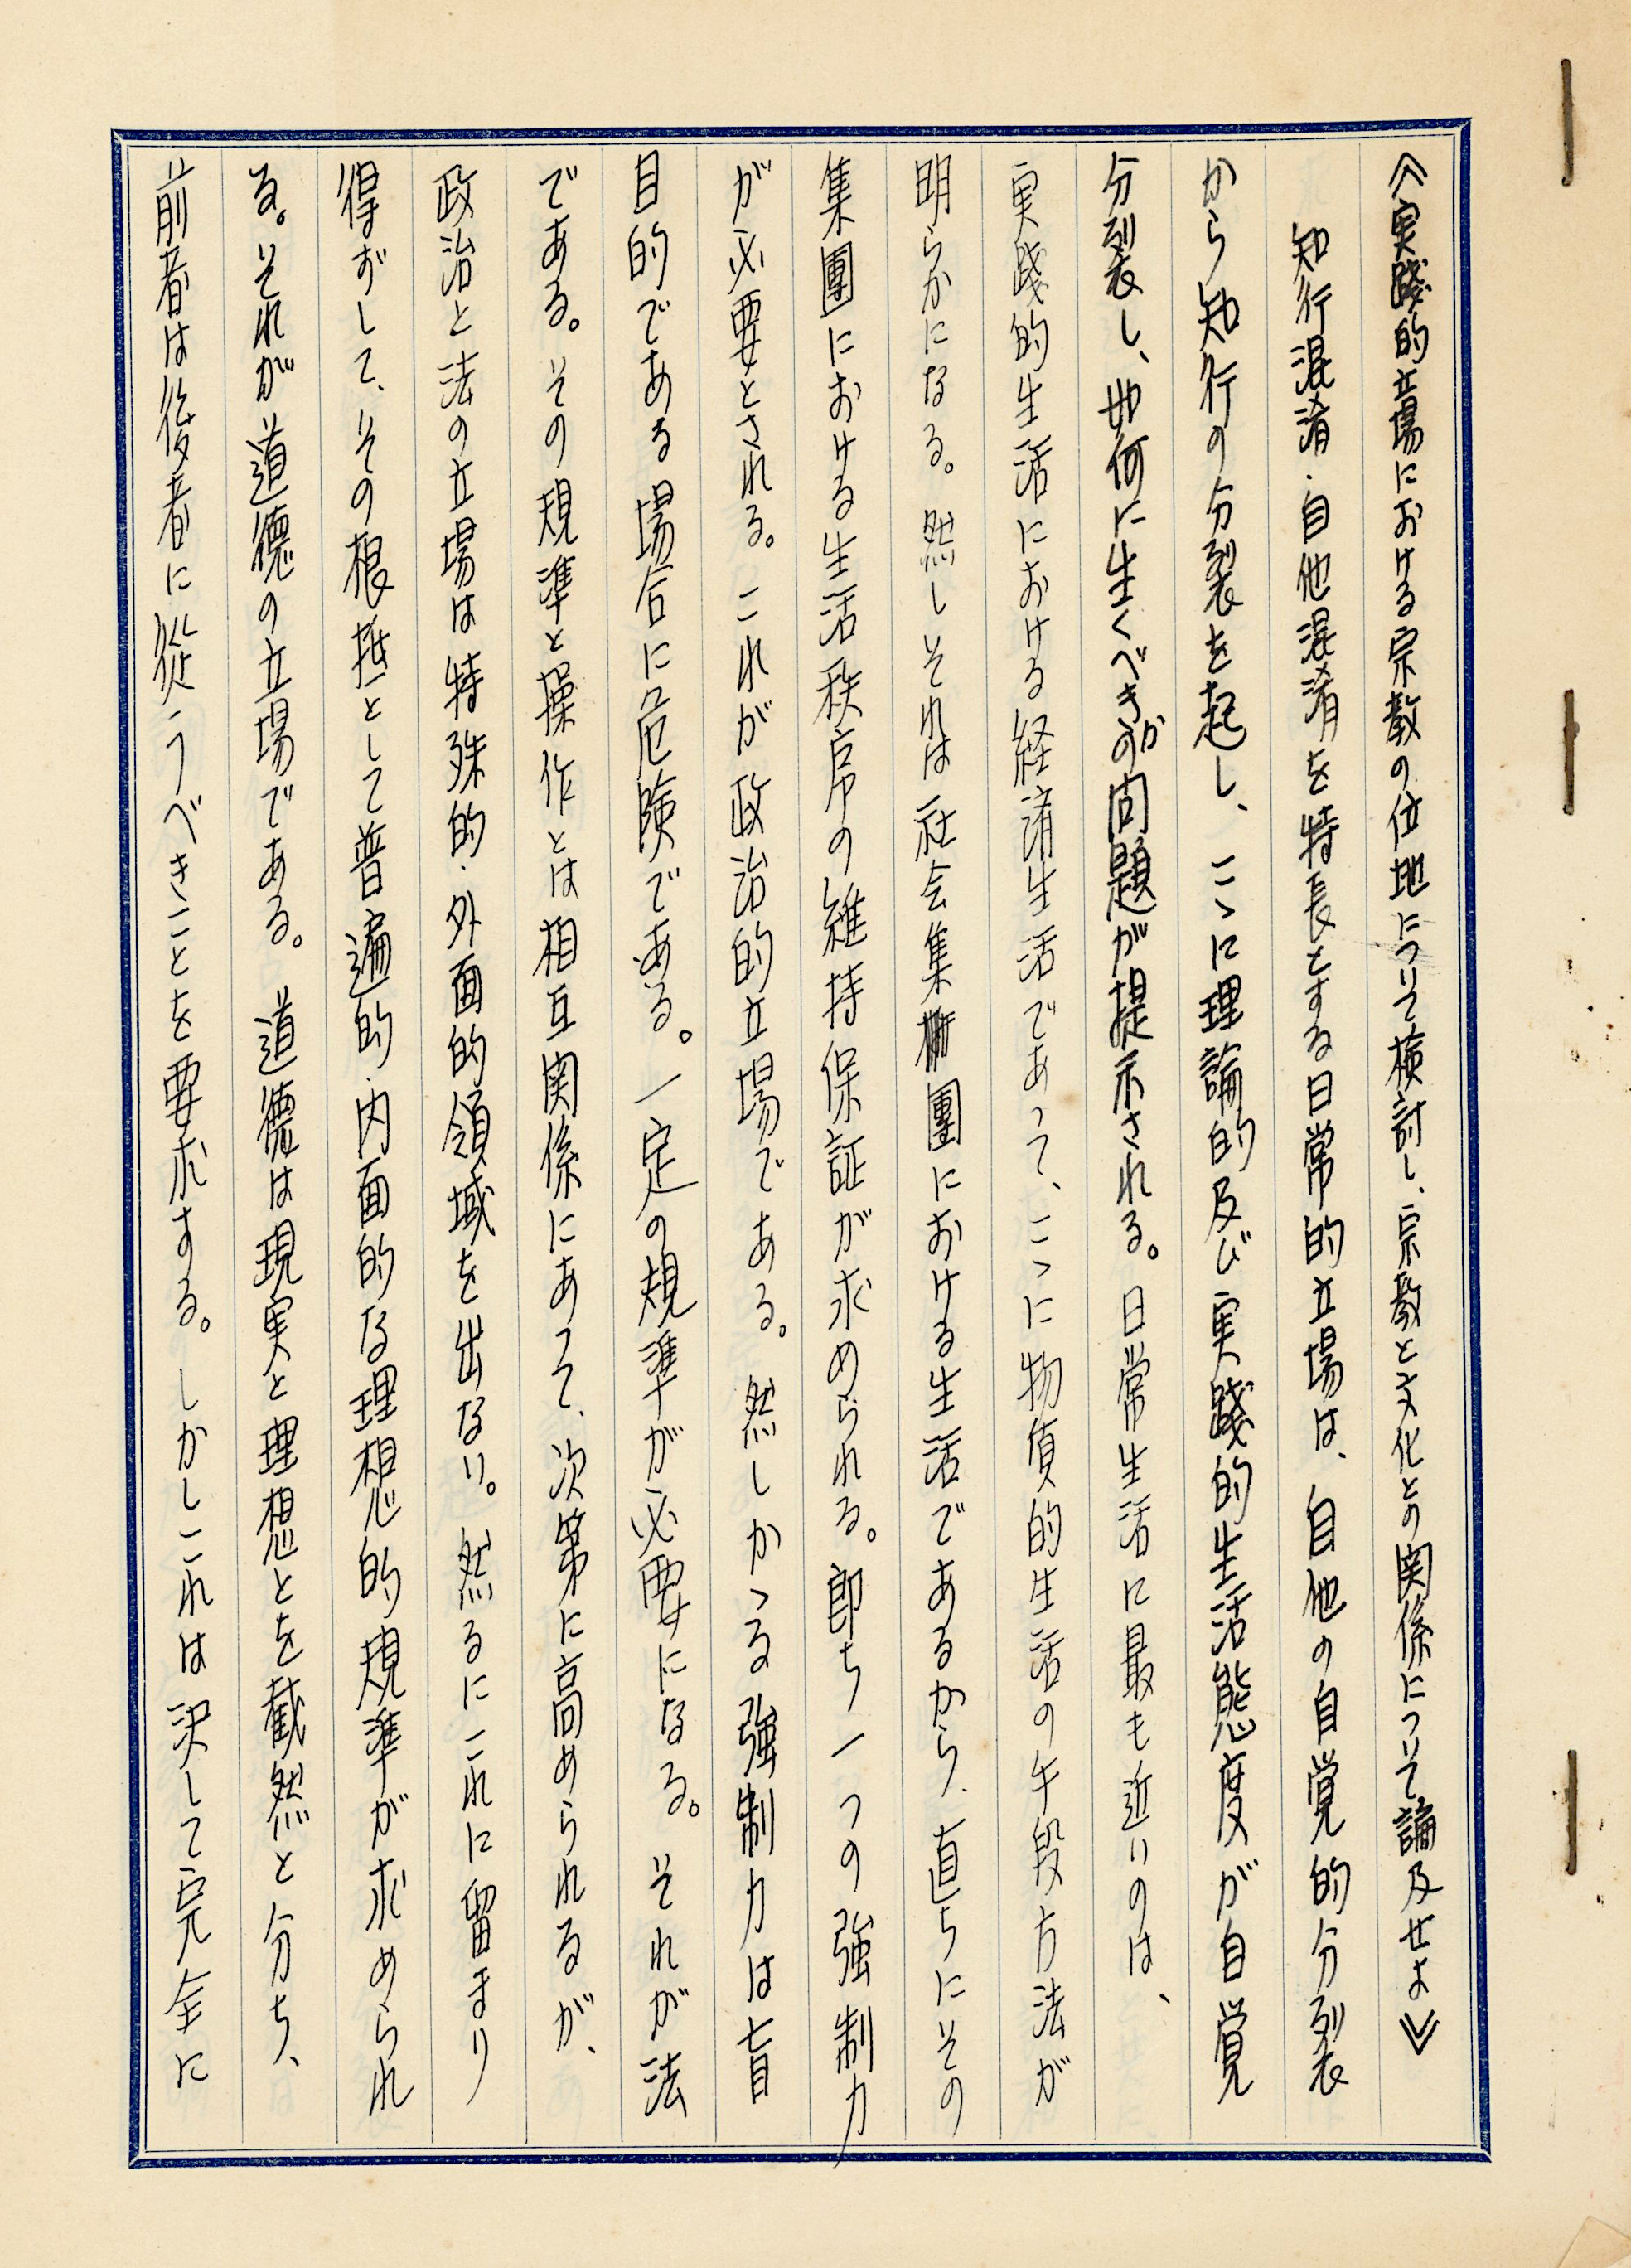 《実践的立場における宗教の位地について検討し、宗教と文化との関係について論及せよ》
知行混淆・自他混淆を特長とする日常的立場は、自他の自覚的分裂
から知行の分裂を起し、こゝに理論的及び実践的生活態度が自覚
分裂し、如何に生くべきかの問題が提示される。日常生活に最も近いのは、
実践的生活における経済生活であって、こゝに物質的生活の手段方法が
明らかになる。然しそれは社会集團における生活であるから、直ちにその
集團における生活秩序の維持保証が求められる。即ち一つの強制力
が必要とされる。これが政治的立場である。然しかゝる強制力は盲
目的である場合に危険である。一定の規準が必要になる。それが法
である。その規準と操作とは相互関係にあって、次第に高められるが、
政治と法の立場は特殊的・外面的領域を出ない。然るにこれに留まり
得ずして、その根拠として普遍的・内面的な理想的規準が求められ
る。それが道徳の立場である。道徳は現実と理想とを截然と分ち、
前者は後者に從うべきことを要求する。しかしこれは決して完全に